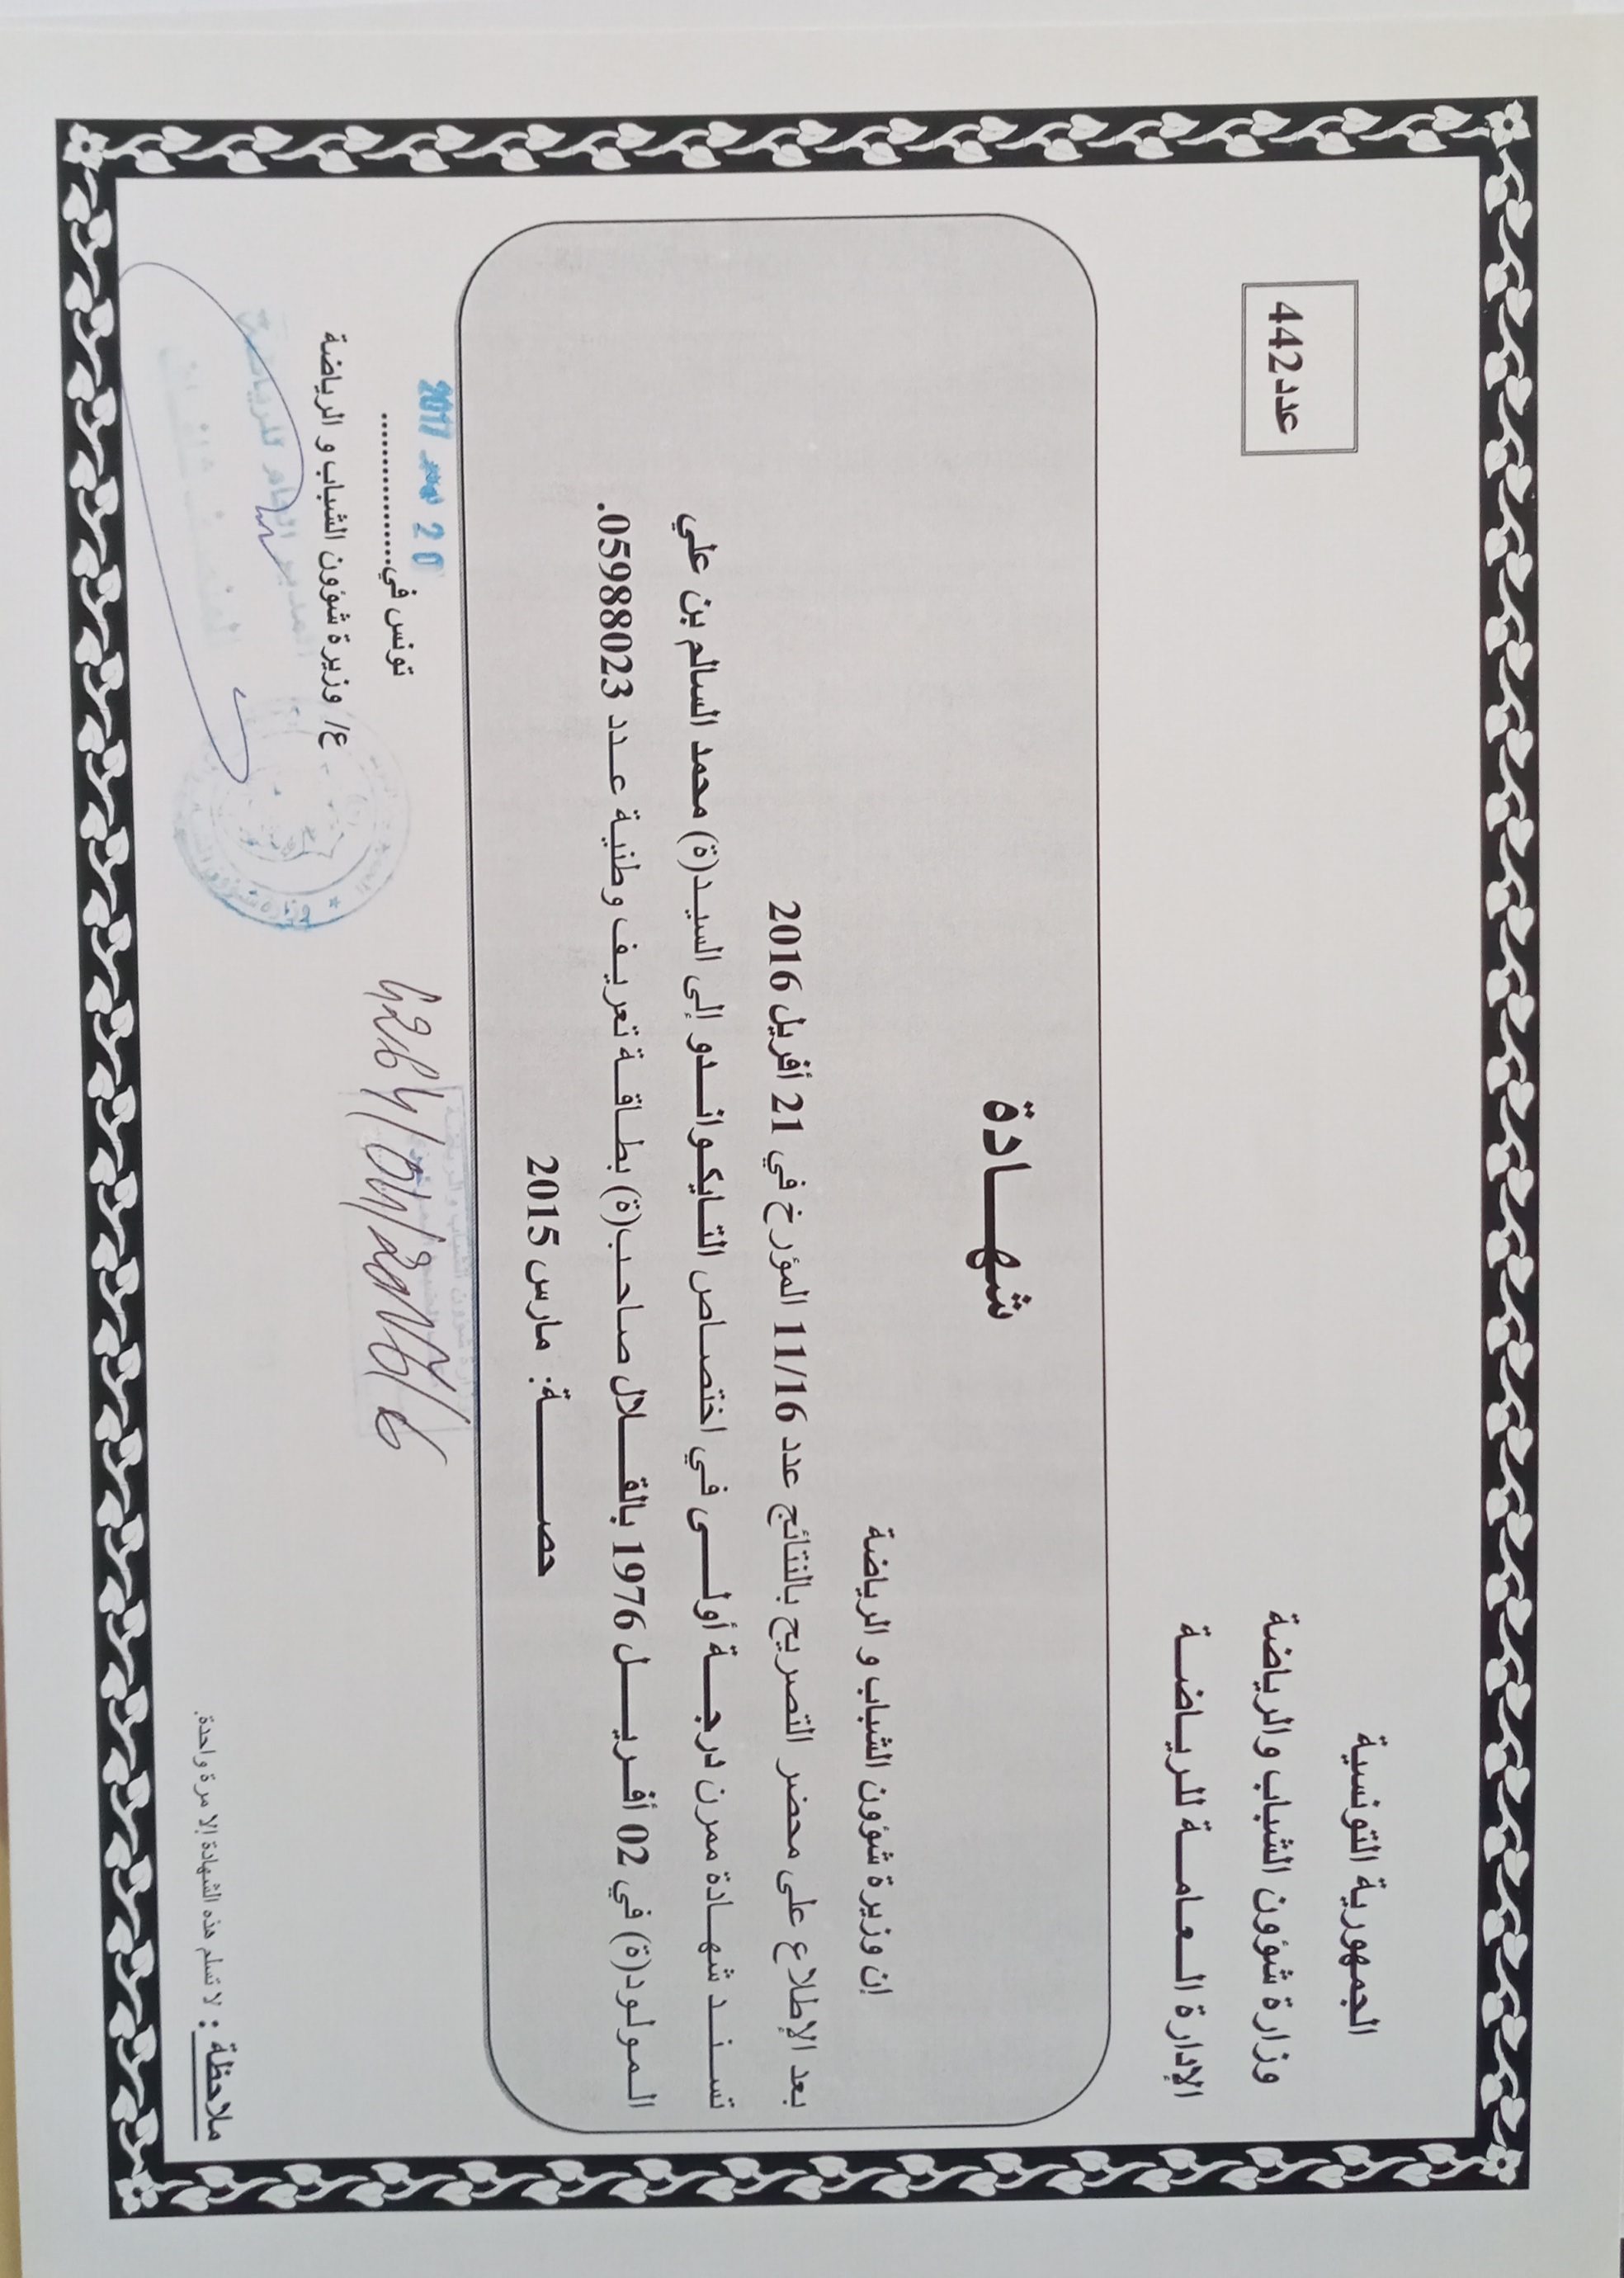 الجمهورية التونسية
وزارة شؤون الشباب والرياضة
الإدارة العامة للرياضة
عدد442
شهادة
إن وزيرة شؤون الشباب و الرياضة
بعد الإطلاع على محضر التصريح بالنتائج عدد 11/16 المؤرخ في 21 أفريل 2016
تسند شهادة ممرن درجة أولى في اختصاص التايكواندو إلى السيد(ة) محمد السالم بن علي
المولود(ة) في 02 أفريل 1976 بالقلال صاحب(ة) بطاقة تعريف وطنية عدد 05988023.
حصة: مارس 2015
تونس في..............
20 2017
ع/ وزيرة شؤون الشباب و الرياضة
المدير العام للرياضة
ملاحظة : لا تسلم هذه الشهادة إلا مرة واحدة.